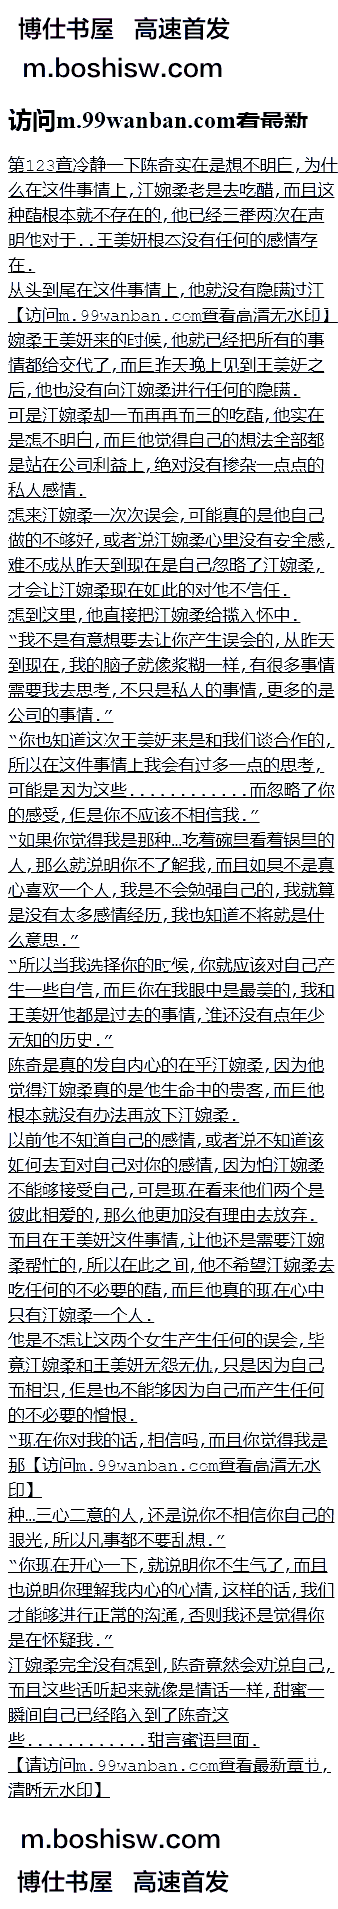 博仕书屋 高速首发
m.boshisw.com
访问m.99wanban.com看最新
第123章冷静一下陈奇实在是想不明白,为什
么在这件事情上,江婉柔老是去吃醋,而且这
种醋根本就不存在的,他已经三番两次在声
明他对于..王美妍根本没有任何的感情存
在.
从头到尾在这件事情上,他就没有隐瞒过江
【访问m.99wanban.com查看高清无水印】
婉柔王美妍来的时候,他就已经把所有的事
情都给交代了,而且昨天晚上见到王美妍之
后,他也没有向江婉柔进行任何的隐瞒.
可是江婉柔却一而再再而三的吃醋,他实在
是想不明白,而且他觉得自己的想法全部都
是站在公司利益上,绝对没有掺杂一点点的
私人感情.
想来江婉柔一次次误会,可能真的是他自己
做的不够好,或者说江婉柔心里没有安全感,
难不成从昨天到现在是自己忽略了江婉柔,
才会让江婉柔现在如此的对他不信任.
想到这里,他直接把江婉柔给揽入怀中.
“我不是有意想要去让你产生误会的,从昨天
到现在,我的脑子就像浆糊一样,有很多事情
需要我去思考,不只是私人的事情,更多的是
公司的事情.”
“你也知道这次王美妍来是和我们谈合作的,
所以在这件事情上我会有过多一点的思考,
可能是因为这些............而忽略了你
的感受,但是你不应该不相信我.”
“如果你觉得我是那种…吃着碗里看着锅里的
人,那么就说明你不了解我,而且如果不是真
心喜欢一个人,我是不会勉强自己的,我就算
是没有太多感情经历,我也知道不将就是什
么意思.”
“所以当我选择你的时候,你就应该对自己产
生一些自信,而且你在我眼中是最美的,我和
王美妍他都是过去的事情,谁还没有点年少
无知的历史.”
陈奇是真的发自内心的在乎江婉柔,因为他
觉得江婉柔真的是他生命中的贵客,而且他
根本就没有办法再放下江婉柔.
以前他不知道自己的感情,或者说不知道该
如何去面对自己对你的感情,因为怕江婉柔
不能够接受自己,可是现在看来他们两个是
彼此相爱的,那么他更加没有理由去放弃.
而且在王美妍这件事情,让他还是需要江婉
柔帮忙的,所以在此之间,他不希望江婉柔去
吃任何的不必要的醋,而且他真的现在心中
只有江婉柔一个人.
他是不想让这两个女生产生任何的误会,毕
竟江婉柔和王美妍无怨无仇,只是因为自己
而相识,但是也不能够因为自己而产生任何
的不必要的憎恨.
“现在你对我的话,相信吗,而且你觉得我是
那【访问m.99wanban.com查看高清无水
印】
种…三心二意的人,还是说你不相信你自己的
眼光,所以凡事都不要乱想.”
“你现在开心一下,就说明你不生气了,而且
也说明你理解我内心的心情,这样的话,我们
才能够进行正常的沟通,否则我还是觉得你
是在怀疑我.”
江婉柔完全没有想到,陈奇竟然会劝说自己,
而且这些话听起来就像是情话一样,甜蜜一
瞬间自己已经陷入到了陈奇这
些............甜言蜜语里面.
【请访问m.99wanban.com查看最新章节,
清晰无水印】
m.boshisw.com
博仕书屋 高速首发